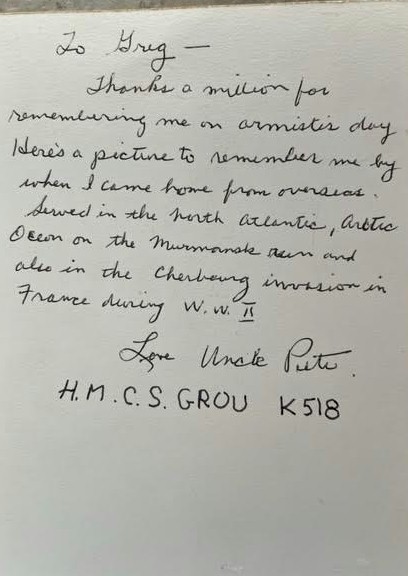 To Greg —
Thanks a million for
remembering me on armistis day
Here's a picture to remember me by
when I came home from overseas.
Served in the north atlantic, Arctic
Ocean on the Murmansk run and
also in the Cherbourg invasion in
France during W.W. II
Love Uncle Pete.
H.M.C.S. GROU K518